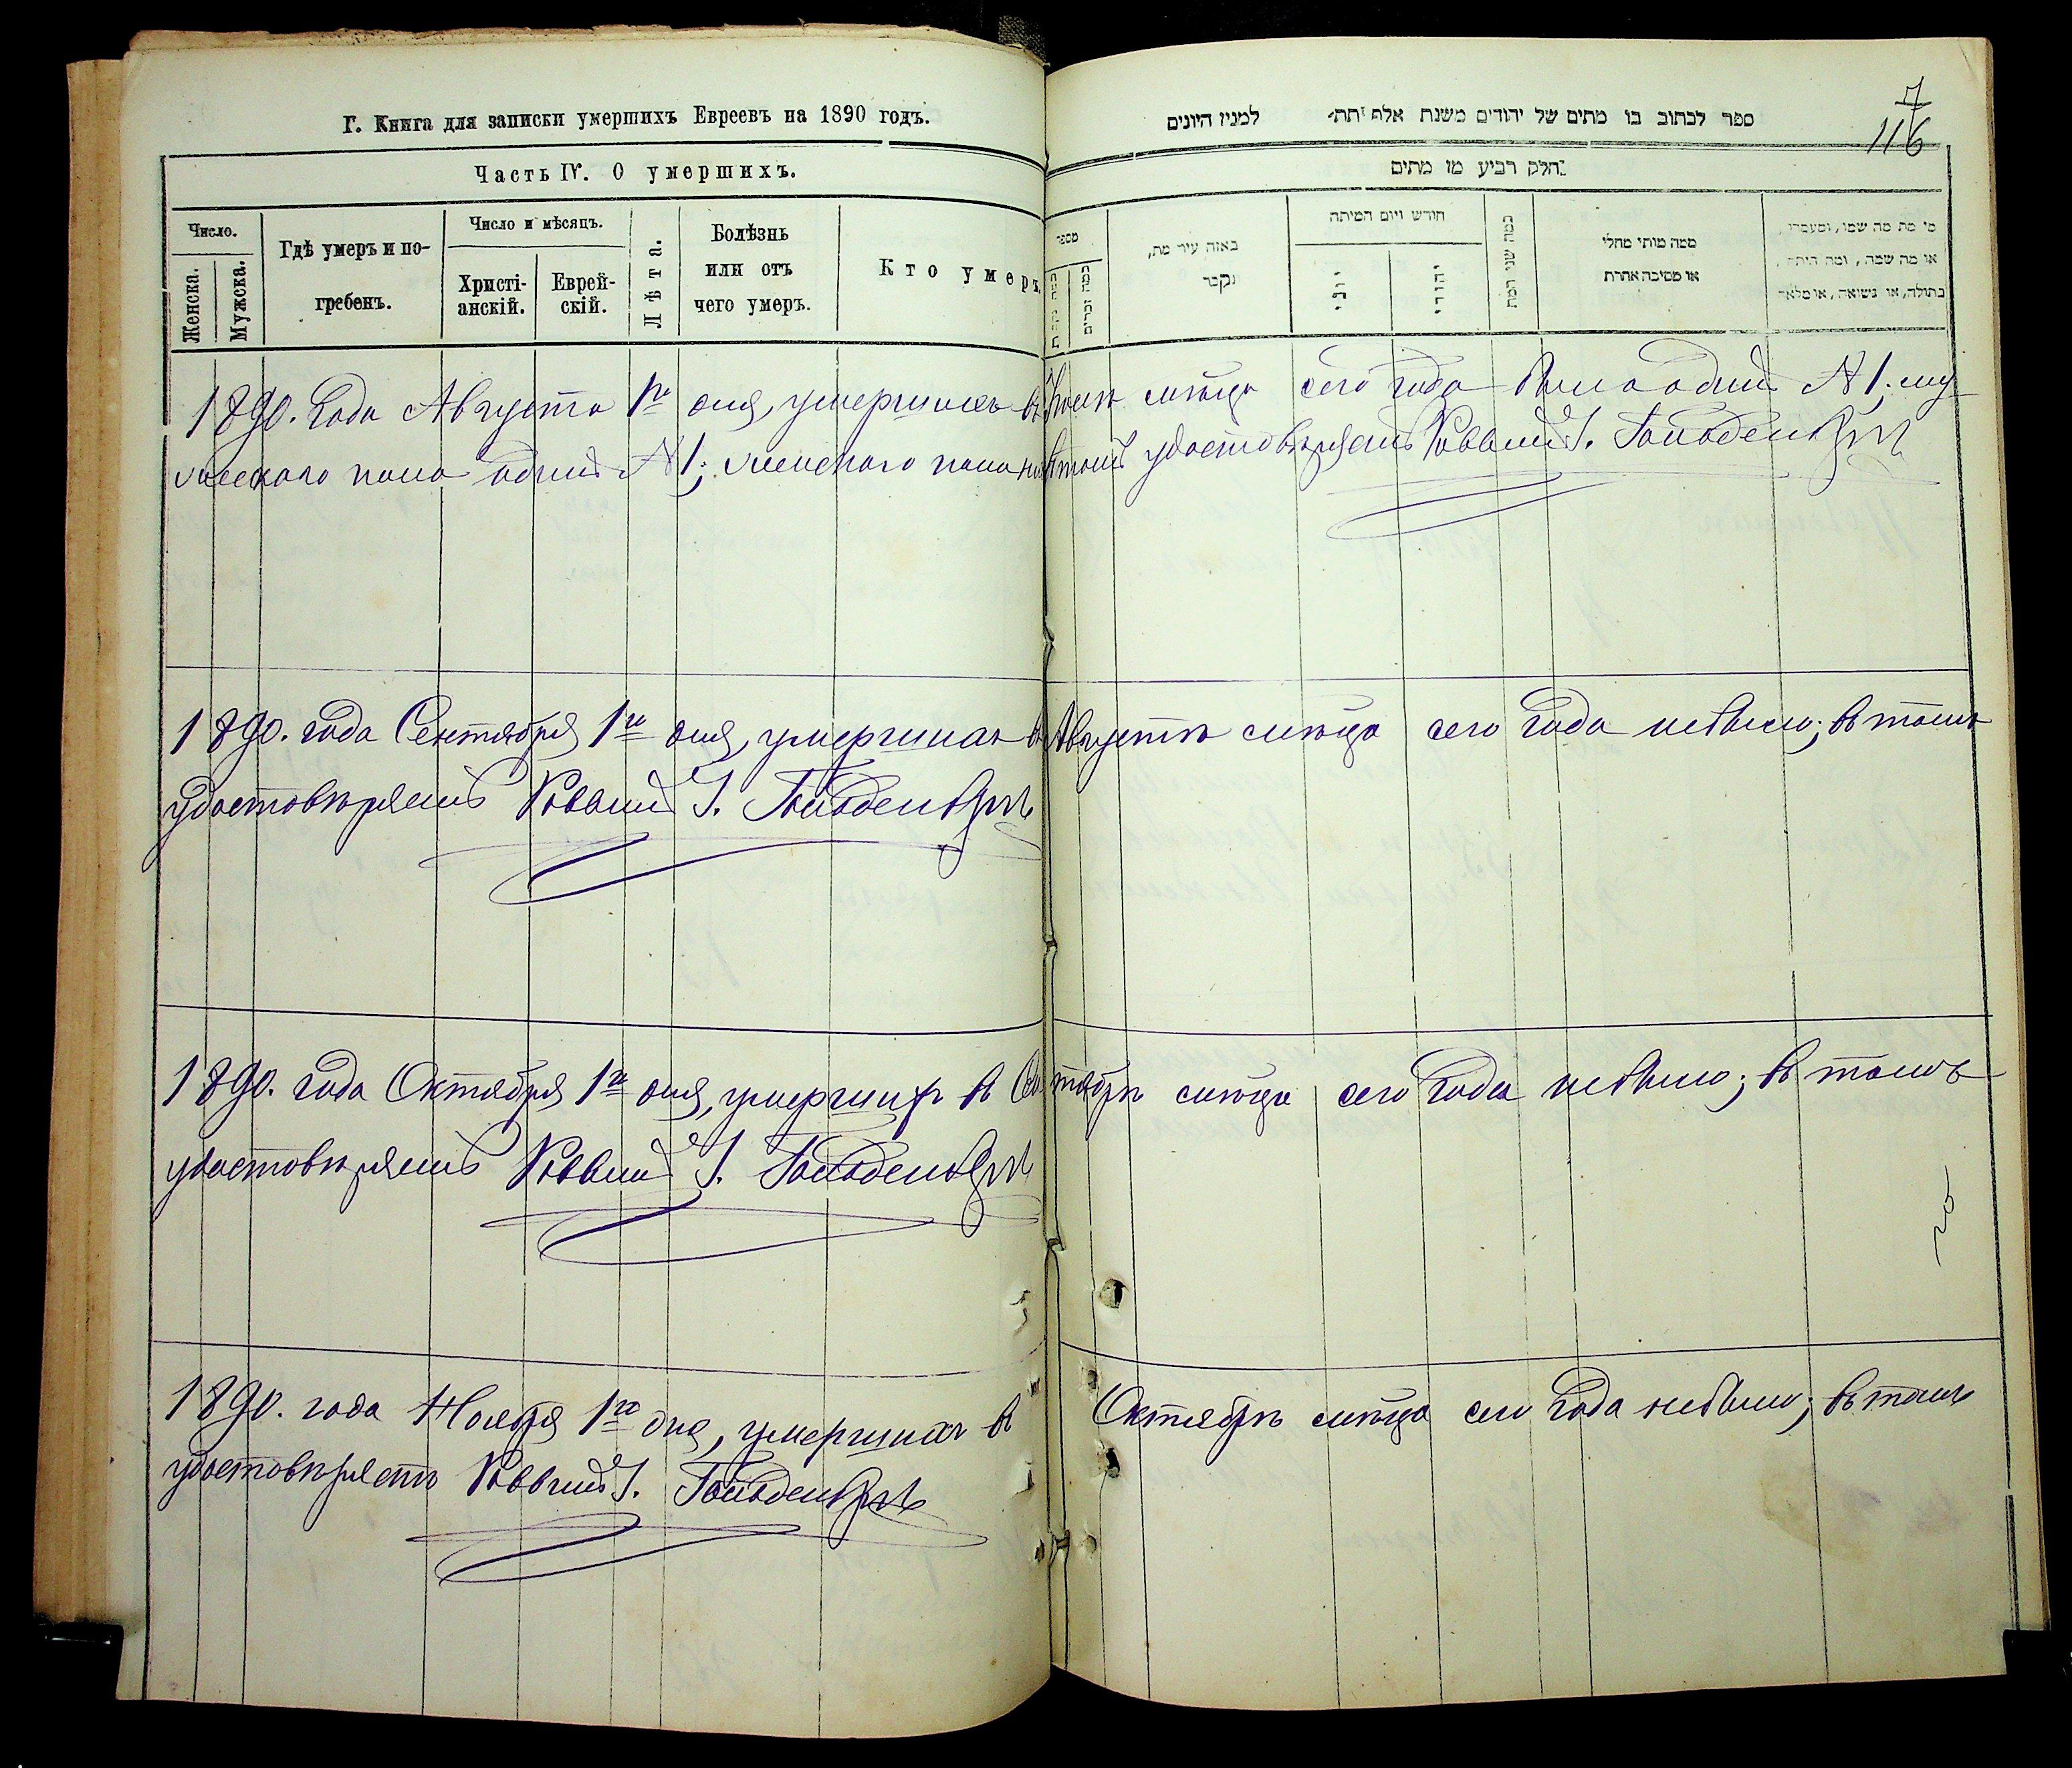 Г. Книга для записки умершихъ Евреевъ на 1890 годъ.
Часть IV. О умершихъ.
Число.
Женска.
Мужска.
Гдѣ умеръ и по-
гребенъ.
Число и мѣсяцъ.
Христі-
анскій.
Еврей-
скій.
Лѣта.
Болѣзнь
или отъ
чего умеръ.
Кто умеръ
ספר לכתוב בו מתים של יהודים משנת אלף תת למנין היונים
7
116
חלק רביע מו מתים
מספר
באזה עיר מת,
נקבר
חודש ויום המיתה
יוני
יהודי
כמה שני המת
ממה מותי מחלי
או מסיבה אחרת
מי מת מה שמו,
או מה שמה, ומה היתה,
בתולה, או נשואה, או
1890. Года Августа 1го дня, умершихъ въ Іюлѣ мѣсцѣ сего года было одинъ N 1; му
жескаго пола одинъ N 1; женскаго пола въ томъ удостовѣряетъ Раввинъ І. Гольденбергъ
1890. года Сентября 1го дня, умершихъ въ Августѣ мѣсцѣ сего года небыло; въ томъ
удостовѣряетъ Раввинъ І. Гольденбергъ
1890. года Октября 1го дня, умершихъ въ Сентябрѣ мѣсцѣ сего года небыло; въ томъ
удостовѣряетъ Раввинъ І. Гольденбергъ
1890. года Ноября 1го дня, умершихъ въ Октябрѣ мѣсцѣ сего года небыло; въ томъ
удостовѣряетъ Раввинъ І. Гольденбергъ